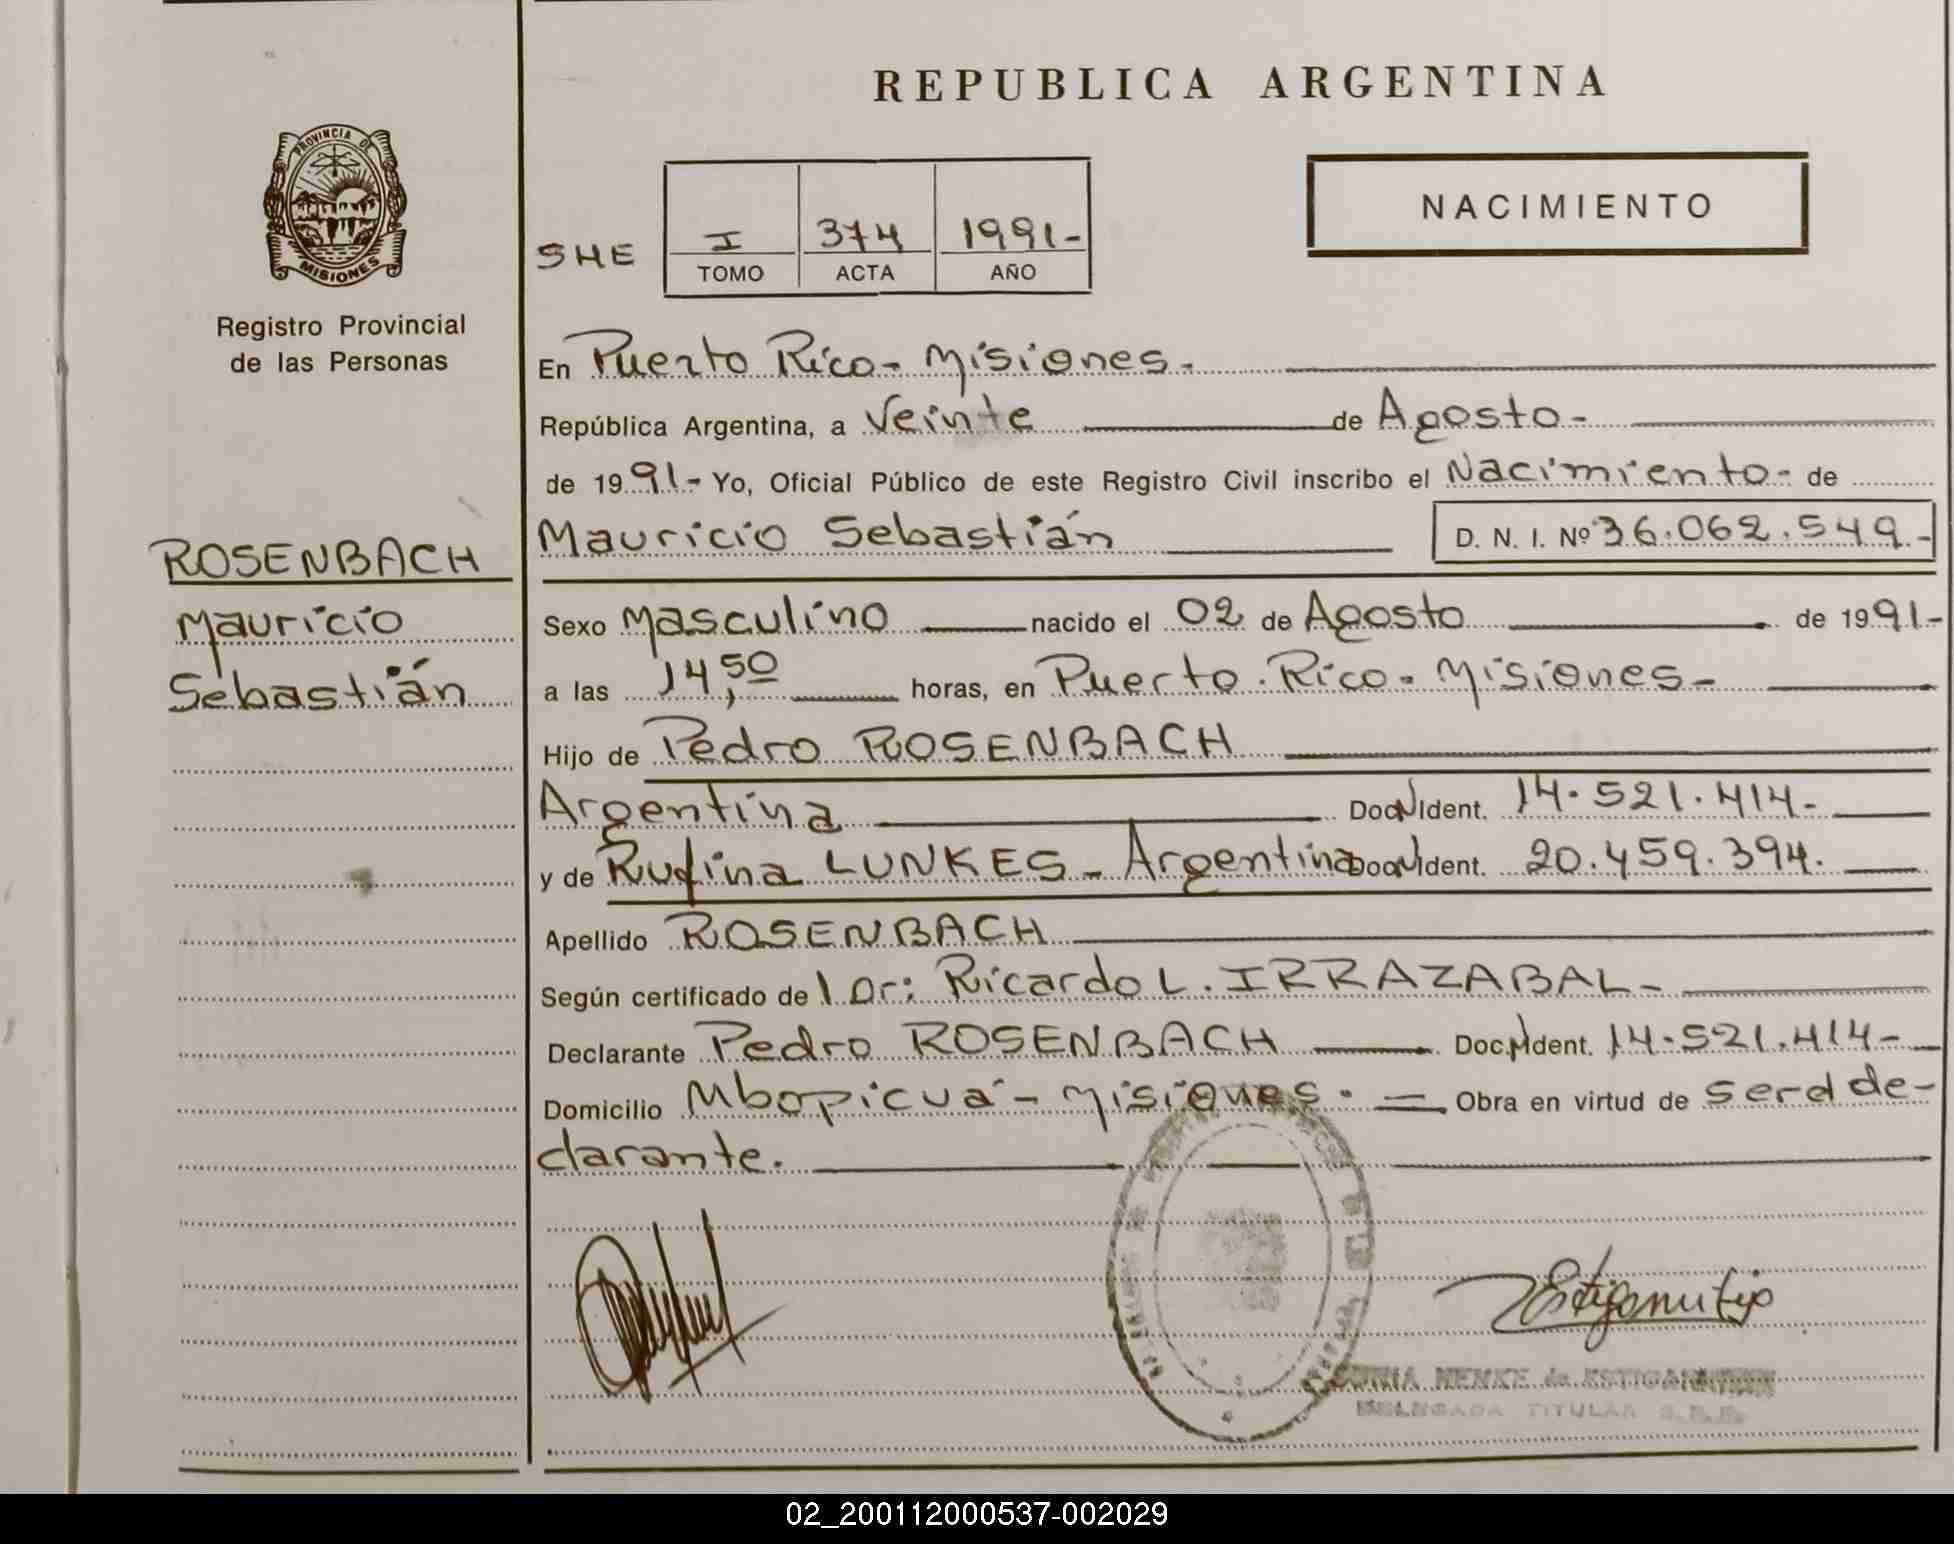 REPUBLICA ARGENTINA
PROVINCIA DE
MISIONES
Registro Provincial
de las Personas
NACIMIENTO
SHE I 374 1991-
TOMO ACTA AÑO
En Puerto Rico- Misiones-
República Argentina, a Veinte de Agosto-
de 1991- Yo, Oficial Público de este Registro Civil inscribo el Nacimiento- de
Mauricio Sebastián D. N. I. Nº 36.062.549.-
ROSENBACH
Mauricio
Sebastián
Sexo Masculino nacido el 02 de Agosto de 1991-
a las 14,50 horas, en Puerto Rico- Misiones-
Hijo de Pedro ROSENBACH
Argentina Doc N Ident. 14.521.414-
y de Rufina LUNKES- Argentina Doc N Ident. 20.459.394.
Apellido ROSENBACH
Según certificado del Dr: Ricardo L. IRRAZABAL-
Declarante Pedro ROSENBACH Doc. N Ident. 14.521.414-
Domicilio Mbopicuá- Misiones- Obra en virtud de ser el de-
clarante.
MENKE de
DELEGADA TITULAR
02_200112000537-002029